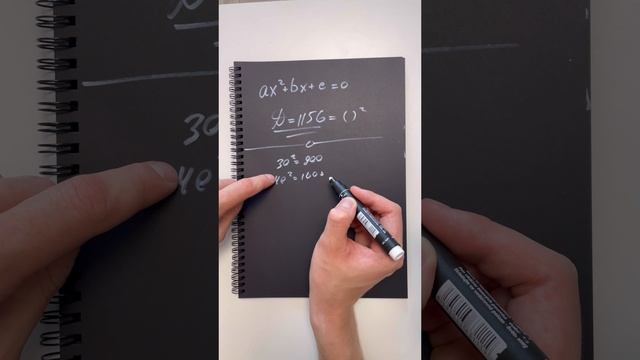 ax²+bx+c=0
D=1156=( )²
30²=900
40²=1600